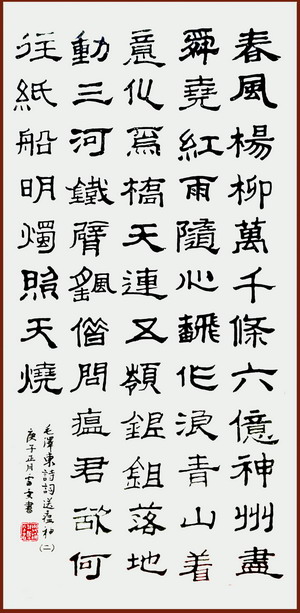 春風楊柳萬千條六億神州盡
舜堯紅雨隨心飜作浪青山着
意化爲橋天連五嶺銀鉏落地
動三河鐵臂颻借問瘟君欲何
往紙船明燭照天燒
毛澤東詩詞送瘟神(二)
庚子正月書